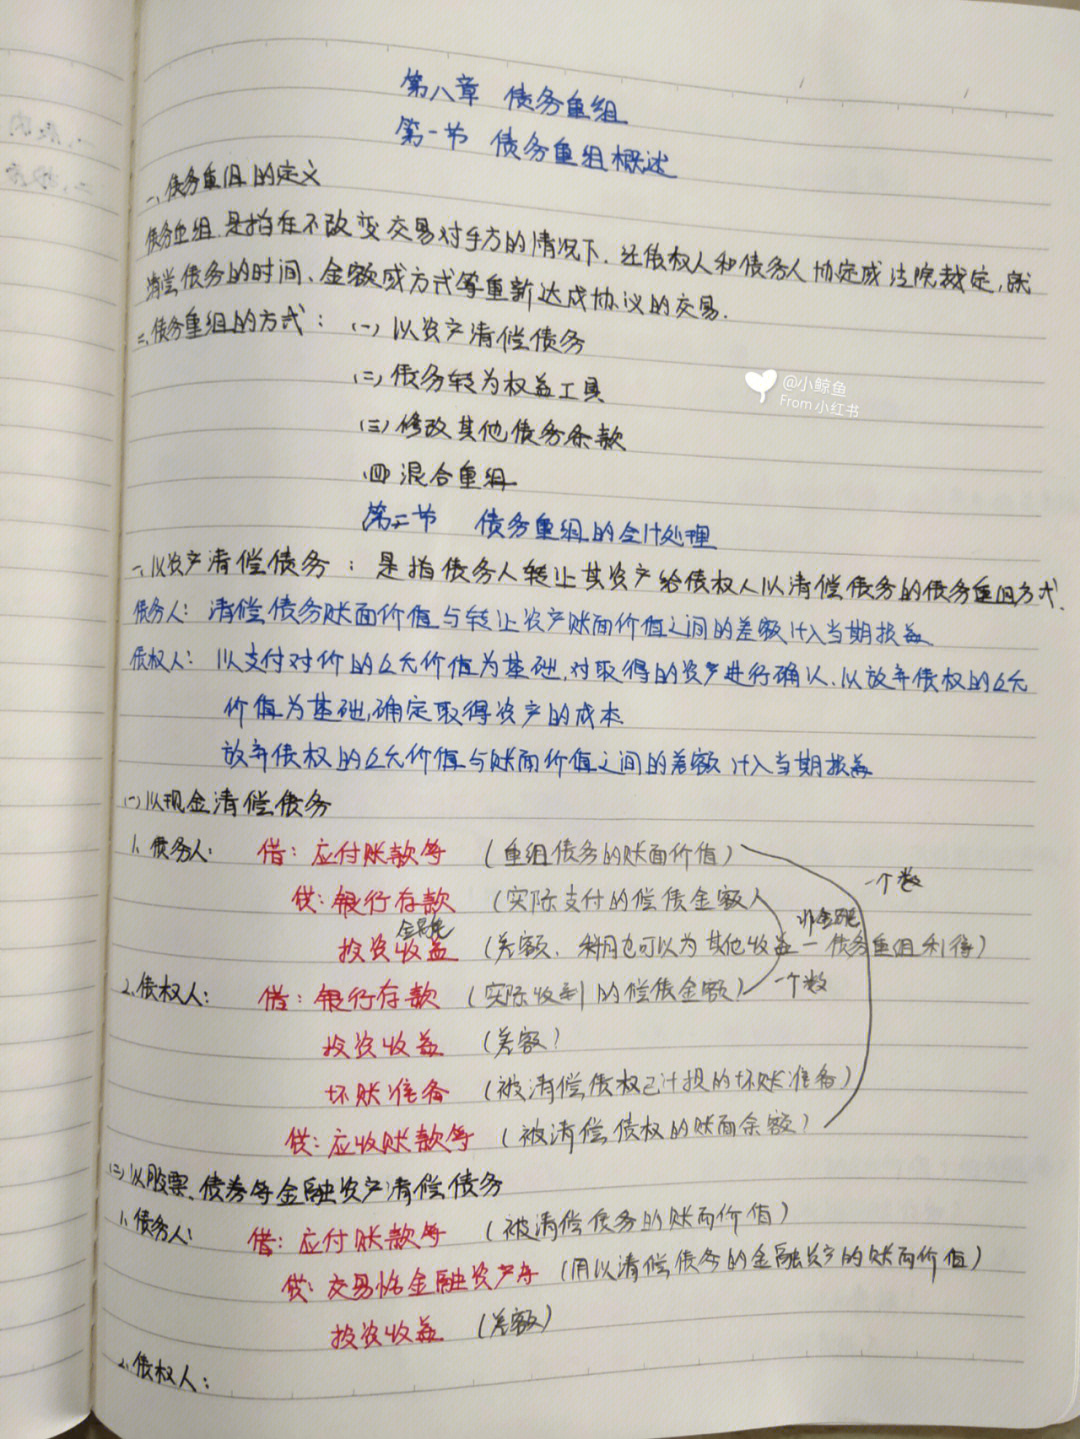 第八章 债务重组
第一节 债务重组概述
一、债务重组的定义
债务重组是指在不改变交易对手方的情况下,经债权人和债务人协定或法院裁定,就
清偿债务的时间、金额或方式等重新达成协议的交易.
二、债务重组的方式: (一)以资产清偿债务
(二)债务转为权益工具
(三)修改其他债务条款
(四)混合重组
@小鲸鱼
From 小红书
第二节 债务重组的会计处理
一、以资产清偿债务: 是指债务人转让其资产给债权人以清偿债务的债务重组方式.
债务人: 清偿债务账面价值与转让资产账面价值之间的差额计入当期损益
债权人: 以支付对价的公允价值为基础,对取得的资产进行确认、以放弃债权的公允
价值为基础,确定取得资产的成本
放弃债权的公允价值与账面价值之间的差额计入当期损益
(一)以现金清偿债务
1. 债务人: 借: 应付账款等 (重组债务的账面价值)
一个数
贷: 银行存款 (实际支付的偿债金额)
金融
非金融
投资收益 (差额、 也可以为其他收益—债务重组利得)
2.债权人: 借: 银行存款 (实际收到的偿债金额) 一个数
投资收益 (差额)
坏账准备 (被清偿债权已计提的坏账准备)
贷: 应收账款等 (被清偿债权的账面余额)
(二)以股票、债券等金融资产清偿债务
1.债务人: 借: 应付账款等 (被清偿债务的账面价值)
贷: 交易性金融资产等 (用以清偿债务的金融资产的账面价值)
投资收益 (差额)
2.债权人: